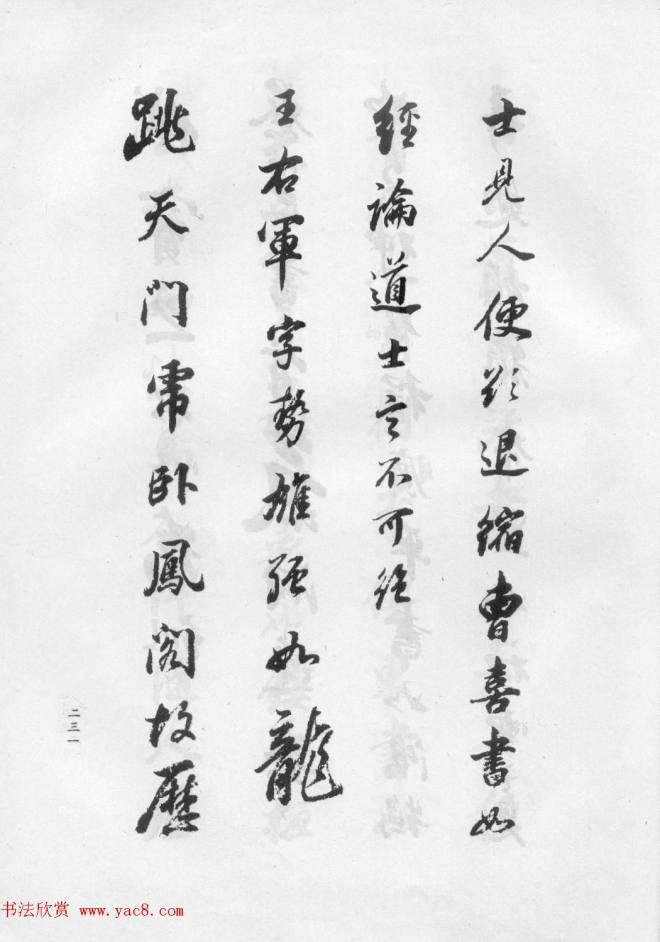 士見人便欲退縮曹喜書如
經論道士言不可絕
王右軍字勢雄强如龍
跳天門虎卧鳳閣故歷
二三一
书法欣赏 www.yac8.com